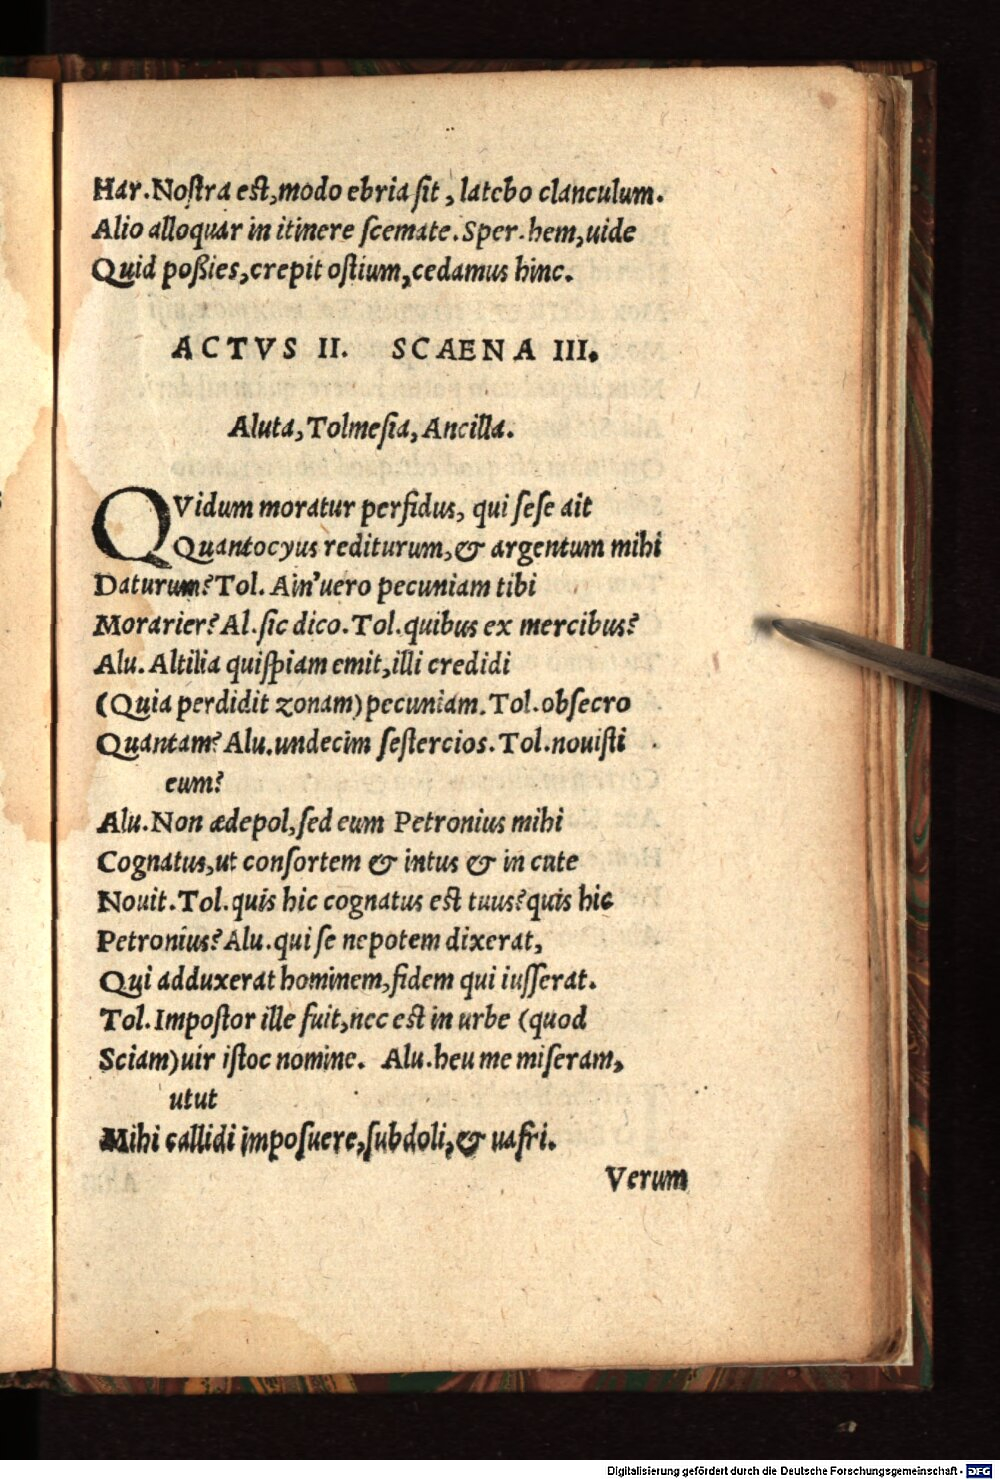 Har. Nostra est, modo ebria sit, latebo clanculum.
Alio alloquar in itinere scemate. Sper. hem, uide
Quid poßies, crepit ostium, cedamus hinc.
ACTVS II. SCAENA III.
Aluta, Tolmesia, Ancilla.
QVidum moratur perfidus, qui sese ait
Quantocyus rediturum, & argentum mihi
Daturum? Tol. Ain' uero pecuniam tibi
Morarier? Al. sic dico. Tol. quibus ex mercibus?
Alu. Altilia quispiam emit, illi credidi
(Quia perdidit zonam) pecuniam. Tol. obsecro
Quantam? Alu. undecim sestercios. Tol. nouisti
eum?
Alu. Non ædepol, sed eum Petronius mihi
Cognatus, ut consortem & intus & in cute
Nouit. Tol. quis hic cognatus est tuus? quis hic
Petronius? Alu. qui se nepotem dixerat,
Qui adduxerat hominem, fidem qui iusserat.
Tol. Impostor ille fuit, nec est in urbe (quod
Sciam) uir istoc nomine. Alu. heu me miseram,
utut
Mihi callidi imposuere, subdoli, & uafri.
Verum
Digitalisierung gefördert durch die Deutsche Forschungsgemeinschaft - DFG